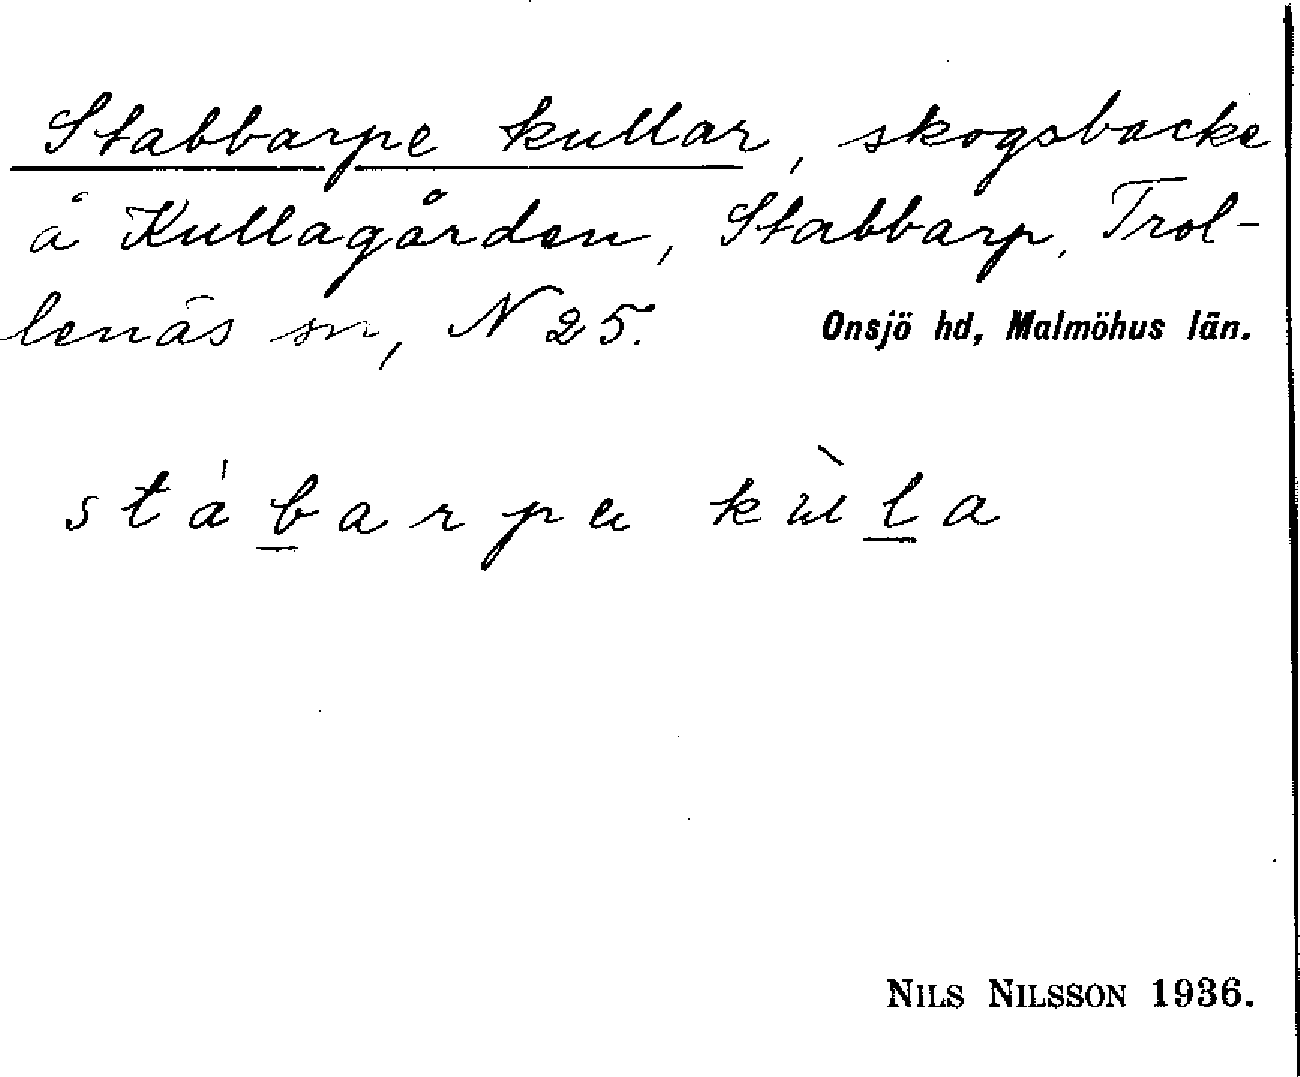 Stabbarpe kullar, skogsbacke
å Kullagården, Stabbarp, Trol-
lenäs sn, N 25. Onsjö hd, Malmöhus län.
stábarpe kùla
NILS NILSSON 1936.